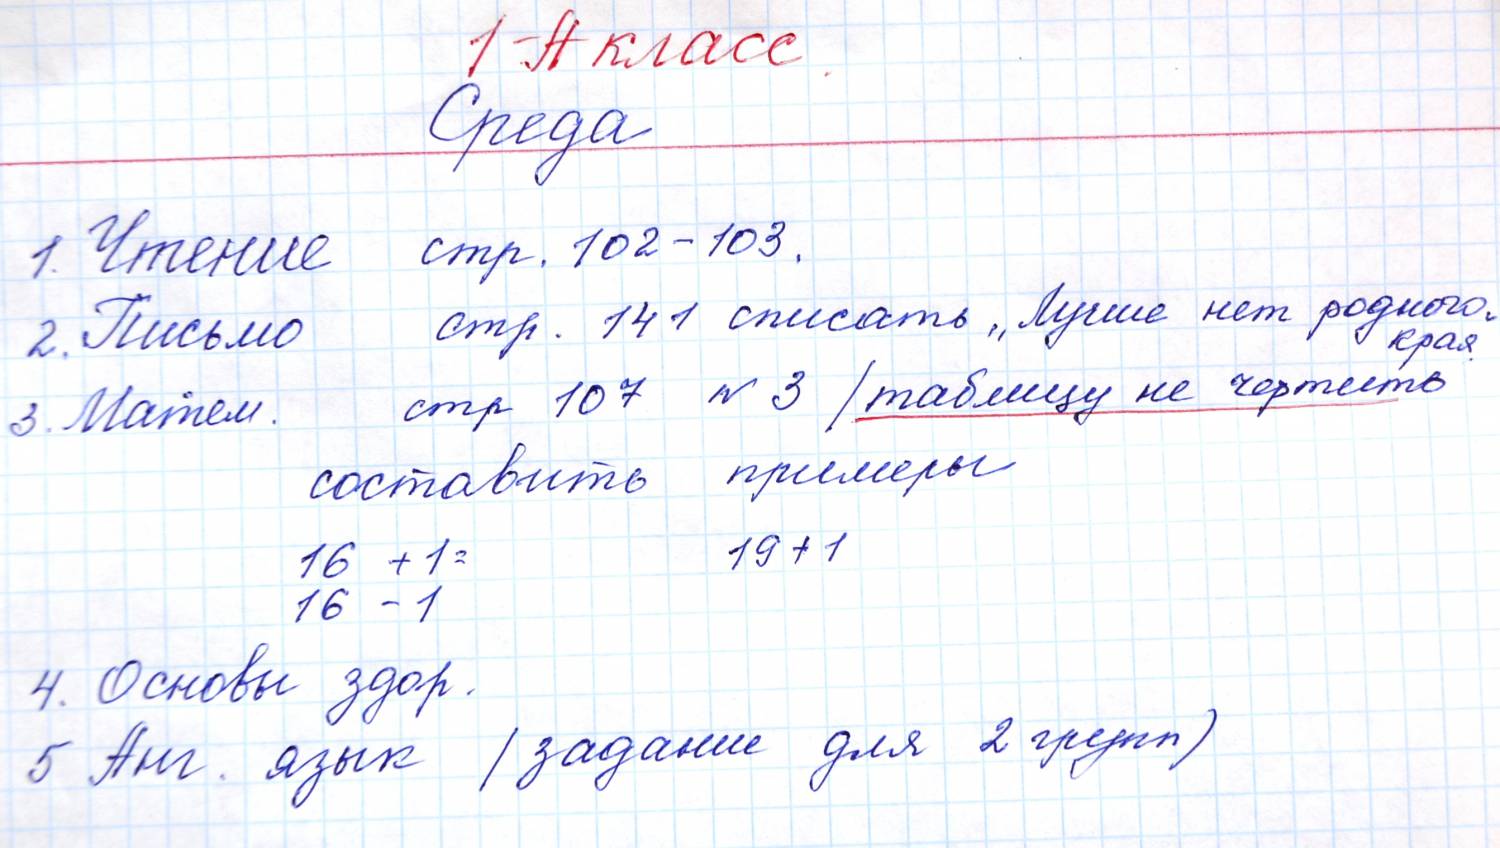 1-А класс.
Среда
1. Чтение стр. 102-103.
2. Письмо стр. 141 списать „Лучше нет родного
края.
3. Матем. стр 107 №3 /таблицу не чертить
составить примеры
16 +1= 19+1
16 -1
4. Основы здор.
5 Анг. язык /задание для 2 групп)